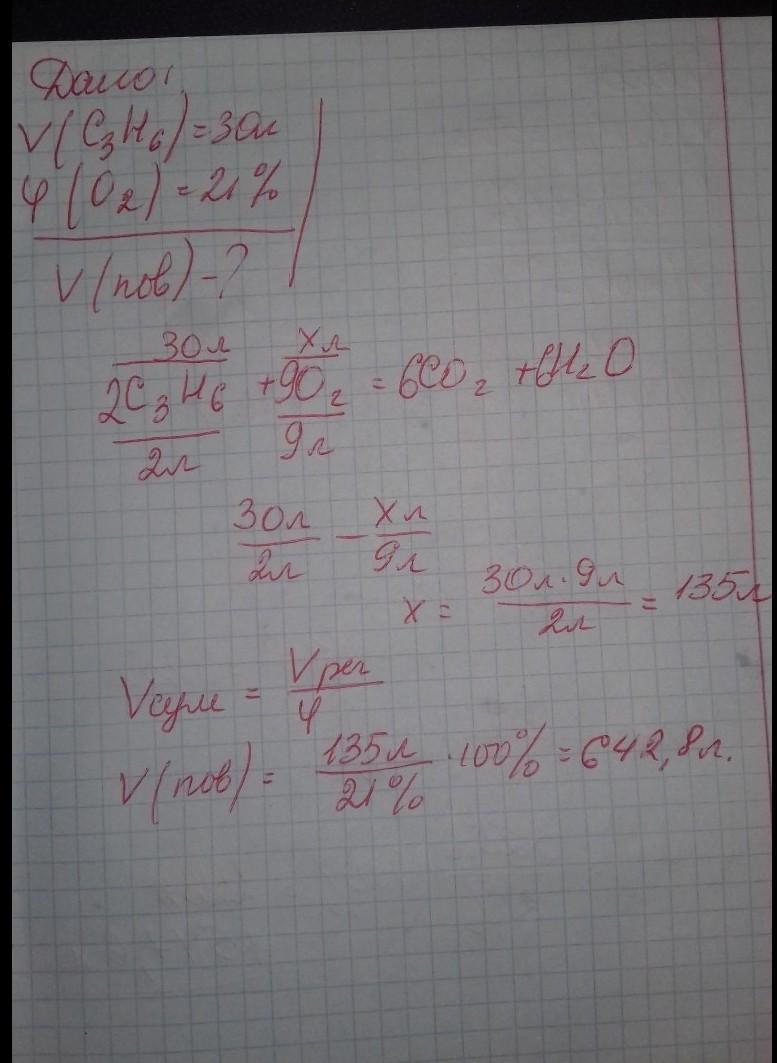 Дано:
V(C₃H₆)=30л
φ(O₂)=21%
V(пов)-?
30л xл
2C₃H₆ + 9O₂ = 6CO₂ + 6H₂O
2л 9л
30л/2л - xл/9л
x = 30л·9л/2л = 135л
Vсум = Vреч/φ
V(пов) = 135л/21% · 100% = 642,8л.